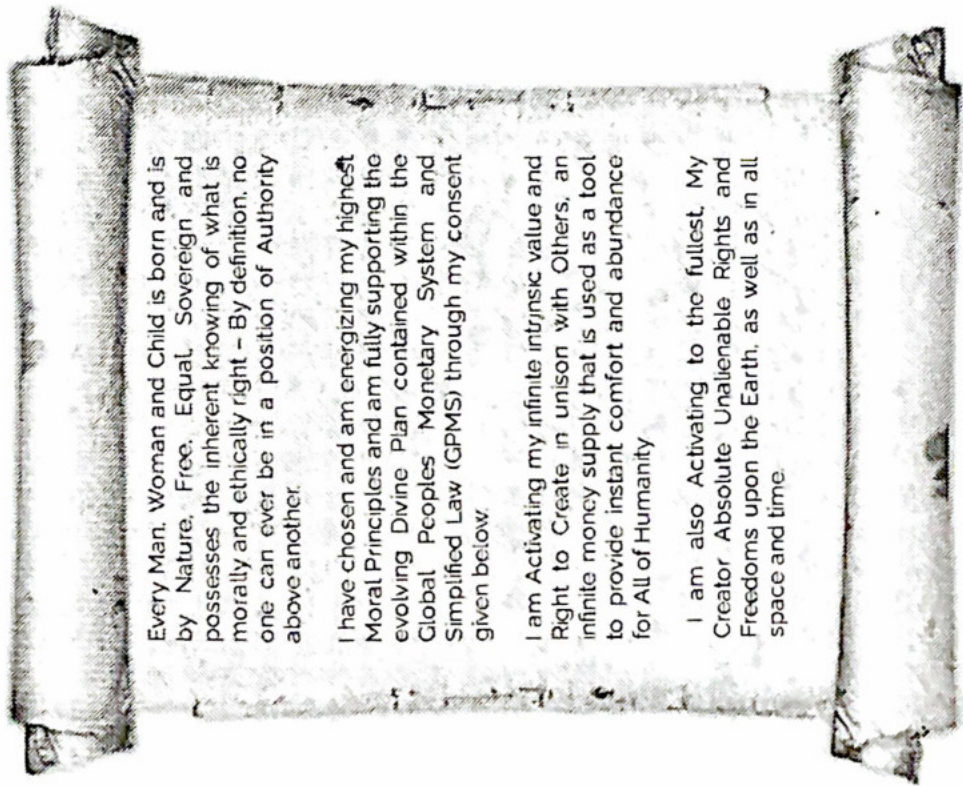 Every Man, Woman and Child is born and is
by Nature, Free, Equal, Sovereign and
possesses the inherent knowing of what is
morally and ethically right – By definition, no
one can ever be in a position of Authority
above another.
I have chosen and am energizing my highest
Moral Principles and am fully supporting the
evolving Divine Plan contained within the
Global Peoples Monetary System and
Simplified Law (GPMS) through my consent
given below.
I am Activating my infinite intrinsic value and
Right to Create in unison with Others, an
infinite money supply that is used as a tool
to provide instant comfort and abundance
for All of Humanity.
I am also Activating to the fullest, My
Creator Absolute Unalienable Rights and
Freedoms upon the Earth, as well as in all
space and time.